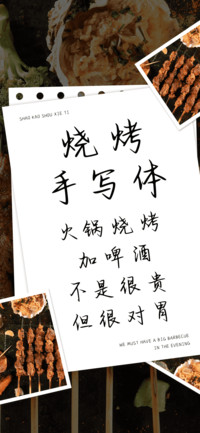 SHAO KAO SHOU XIE TI
烧烤
手写体
火锅烧烤
加啤酒
不是很贵
但很对胃
WE MUST HAVE A BIG BARBECUE
IN THE EVENING